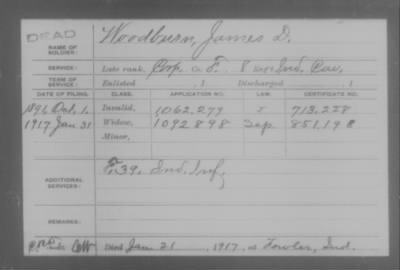 DEAD
NAME OF SOLDIER: Woodburn, James D.
SERVICE: Late rank, Corp. Co. F. 8 Reg't Ind. Cav.
TERM OF SERVICE: Enlisted , 1 Discharged , 1
DATE OF FILING. CLASS. APPLICATION NO. LAW. CERTIFICATE NO.
1896 Oct. 1. Invalid, 1062,279 713,228
1917 Jan 31 Widow, 1092898 Sep. 851,198
Minor,
ADDITIONAL SERVICES: F. 39, Ind. Inf,
REMARKS:
Died Jan 21 1917, at Fowler, Ind.